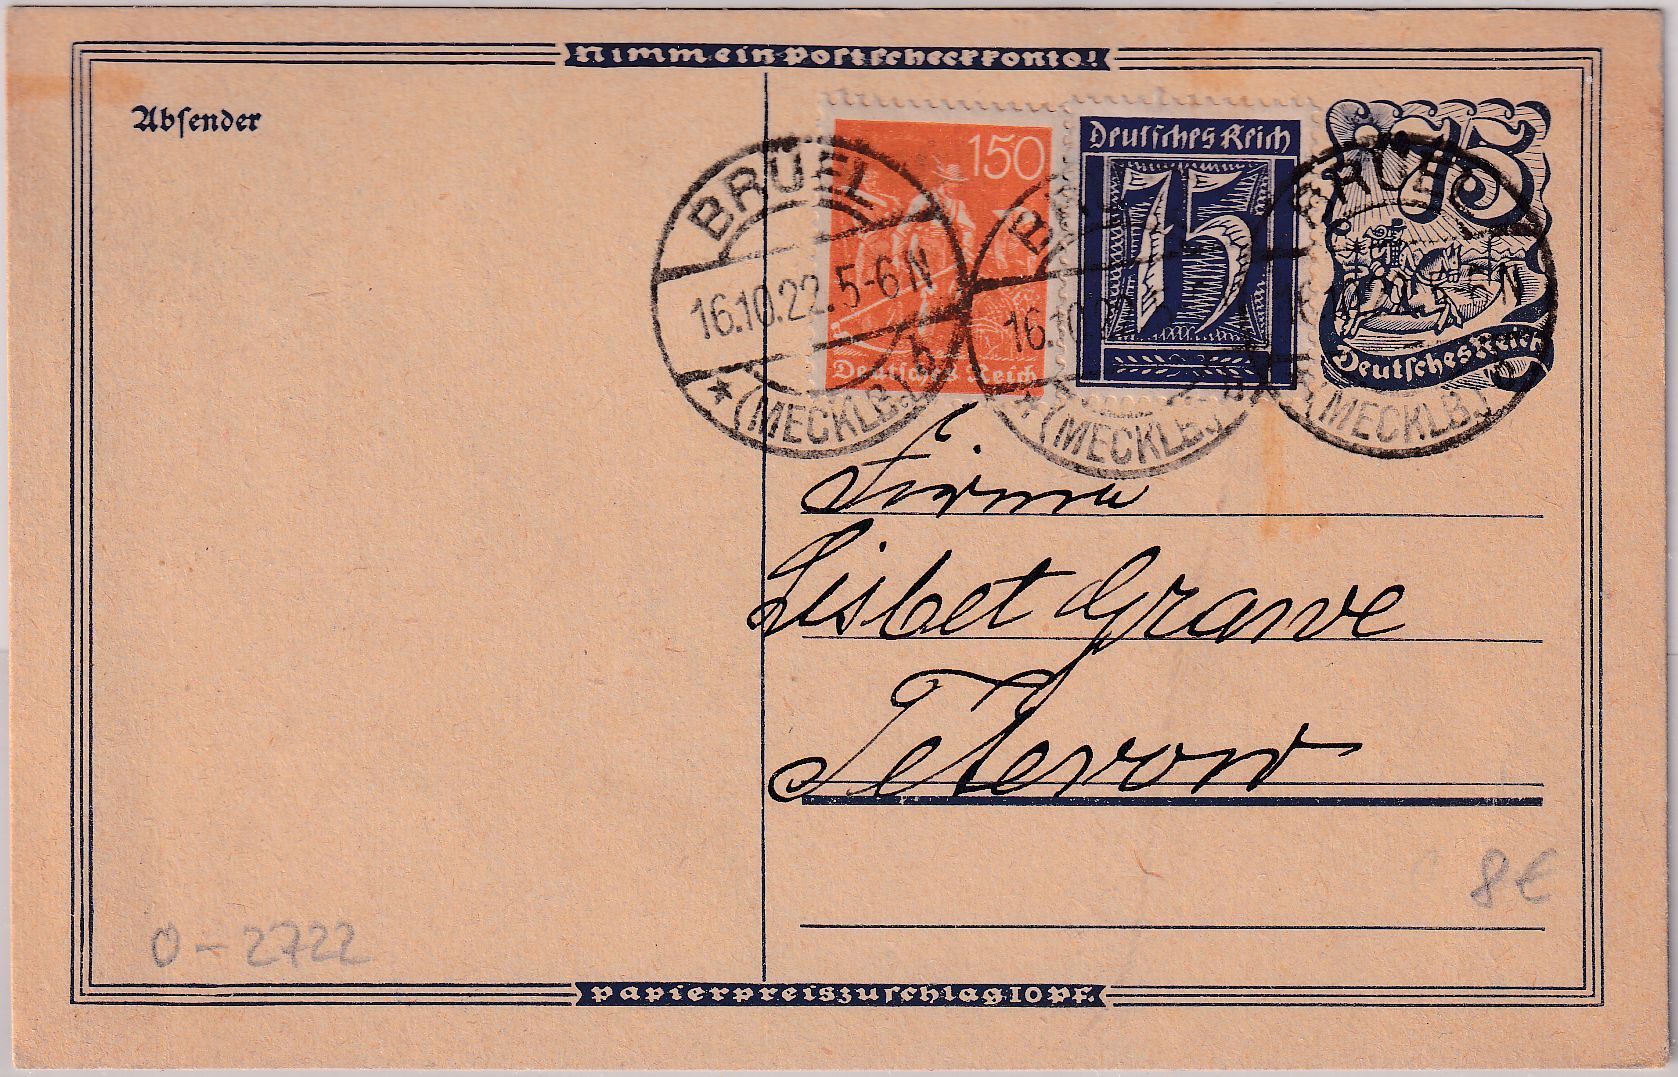 Nimm ein Postscheckkonto!
Absender
150
Deutsches Reich
Deutsches Reich
75
75
Deutsches Reich
BRUEL
16.10.22.5-6N
★(MECKLB.)b
16.10.22
★(MECKLB.)
BRUEL
6N
(MECKLB.)
Firma
Lisbet Grawe
Teterow
8€
O-2722
Papierpreiszuschlag 10 Pf.